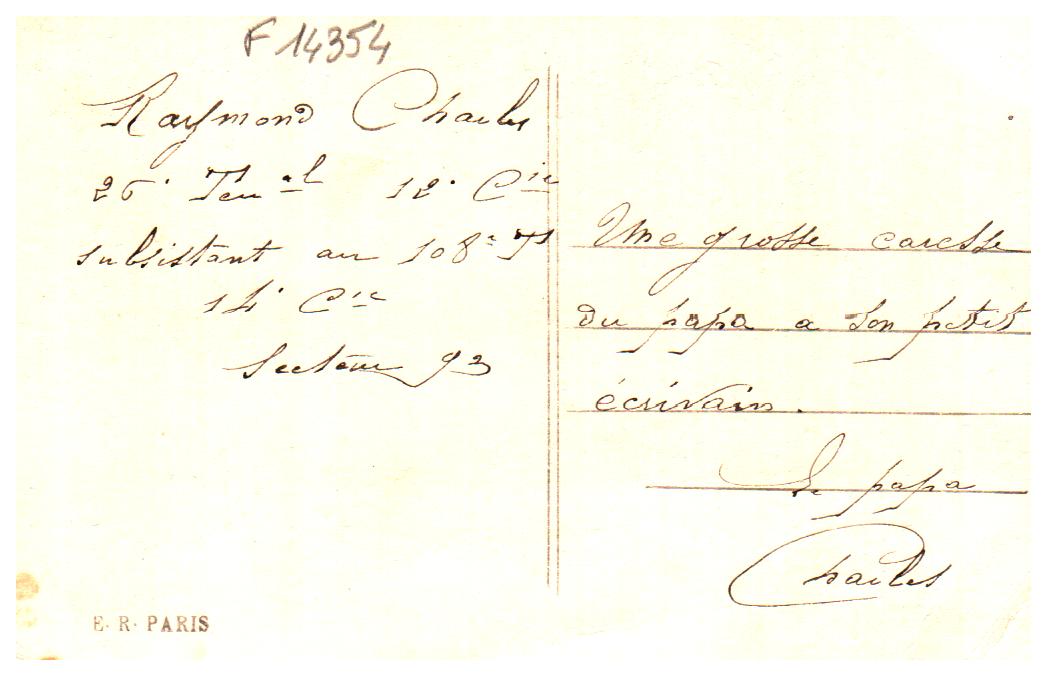 F 14354
Raymond Charles
26° Terr al 12° Cie
subsistant au 108e T
14° Cie
Secteur 93
Une grosse caresse
du papa a son petit
écrivain.
Le papa
Charles
E. R. PARIS